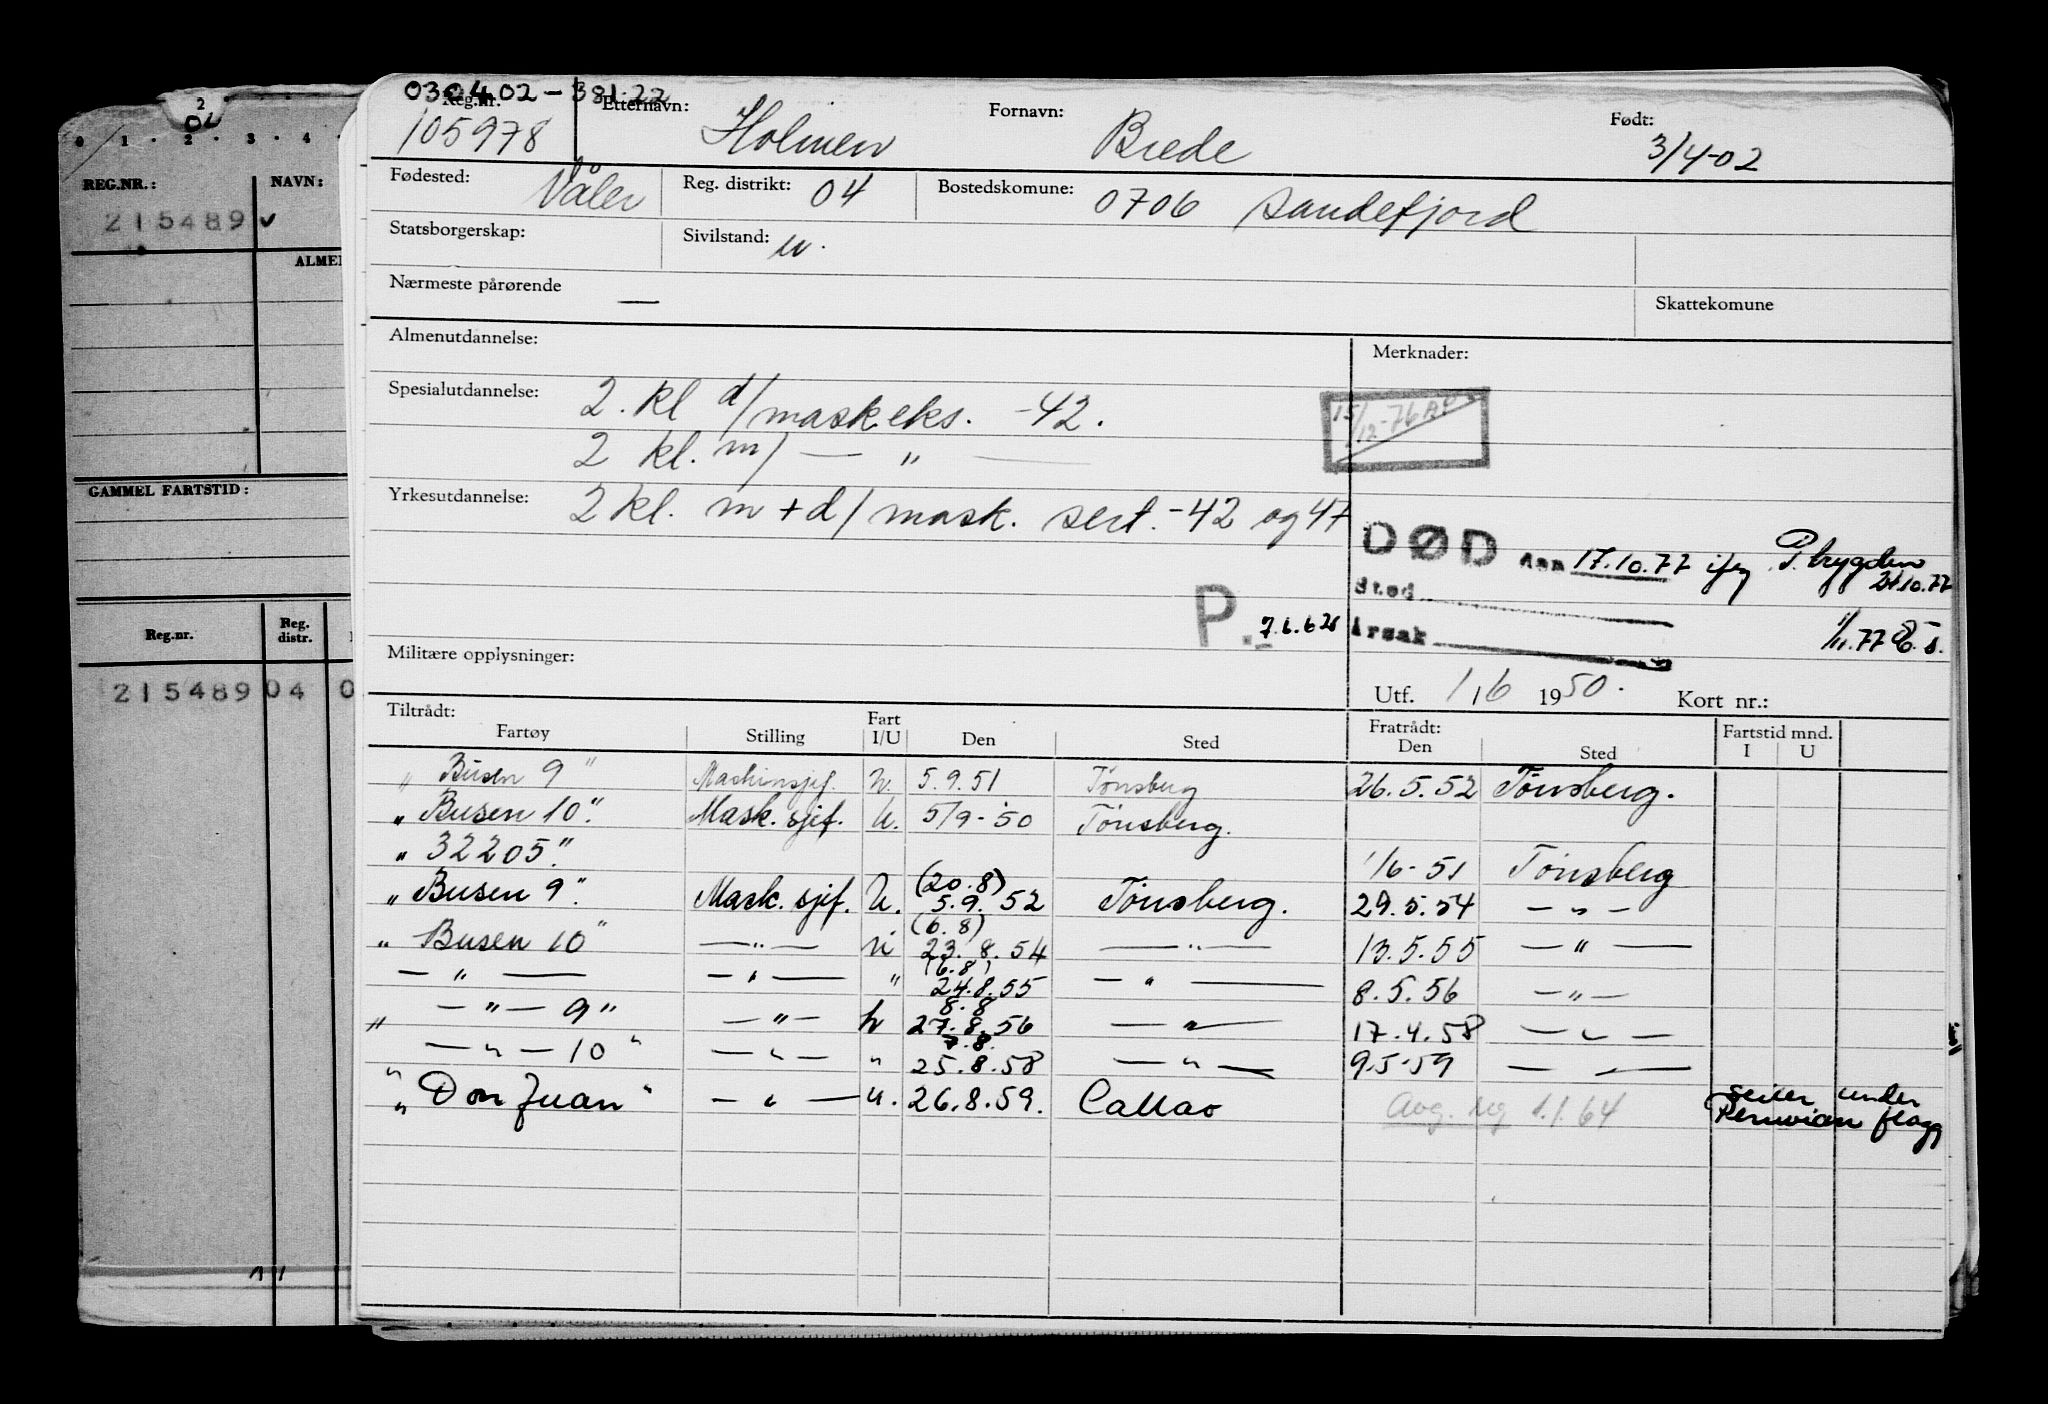 030402-38122
Reg.nr. Etternavn: Fornavn: Født:
105978 Holmen Brede 3/4-02
Fødested: Våler Reg. distrikt: 04 Bostedskomune: 0706 Sandefjord
Statsborgerskap: Sivilstand: u.
Nærmeste pårørende —
Skattekomune
Almenutdannelse: Merknader:
Spesialutdannelse: 2. kl d/maskeks. -42.
15/12-76
2 kl. m/ — " —
Yrkesutdannelse: 2 kl. m+d/mask. sert.-42 og 47
DØD den 17.10.77 ifg P.trygden
24.10.77
Sted
P. 7.6.62 Årsak 1/11.77
Militære opplysninger:
Utf. 1/6 1950. Kort nr.:
Tiltrådt: Fart Fratrådt: Fartstid mnd.
Fartøy Stilling I/U Den Sted Den Sted I U
" Busen 9 " Maskinsjef. u. 5.9.51 Tønsberg 26.5.52 Tønsberg.
" Busen 10". Mask. sjef. U. 5/9-50 Tønsberg.
" 32205." 1/6-51 Tønsberg
(20.8)
" Busen 9". Mask. sjef. U. 5.9.52 Tønsberg. 29.5.54 — " —
(6.8)
" Busen 10" — " — u 23.8.54 — " — 13.5.55 — " —
(6.8)
— " — — " — " 24.8.55 — " — 8.5.56 — " —
8.8
" — " — 9 " — " — u 27.8.56 — " — 17.4.58 — " —
7.8.
— " — 10 " — " — " 25.8.58 — " — 9.5.59 — " —
" Don Juan " — " — u. 26.8.59. Callao Avg. reg 1.1.64 seiler under
Peruvian flagg
2
02
0 . 1 . 2 . 3 . 4
REG.NR.: NAVN:
215489
ALME
GAMMEL FARTSTID:
Reg.nr. Reg. distr.
215489 04 0